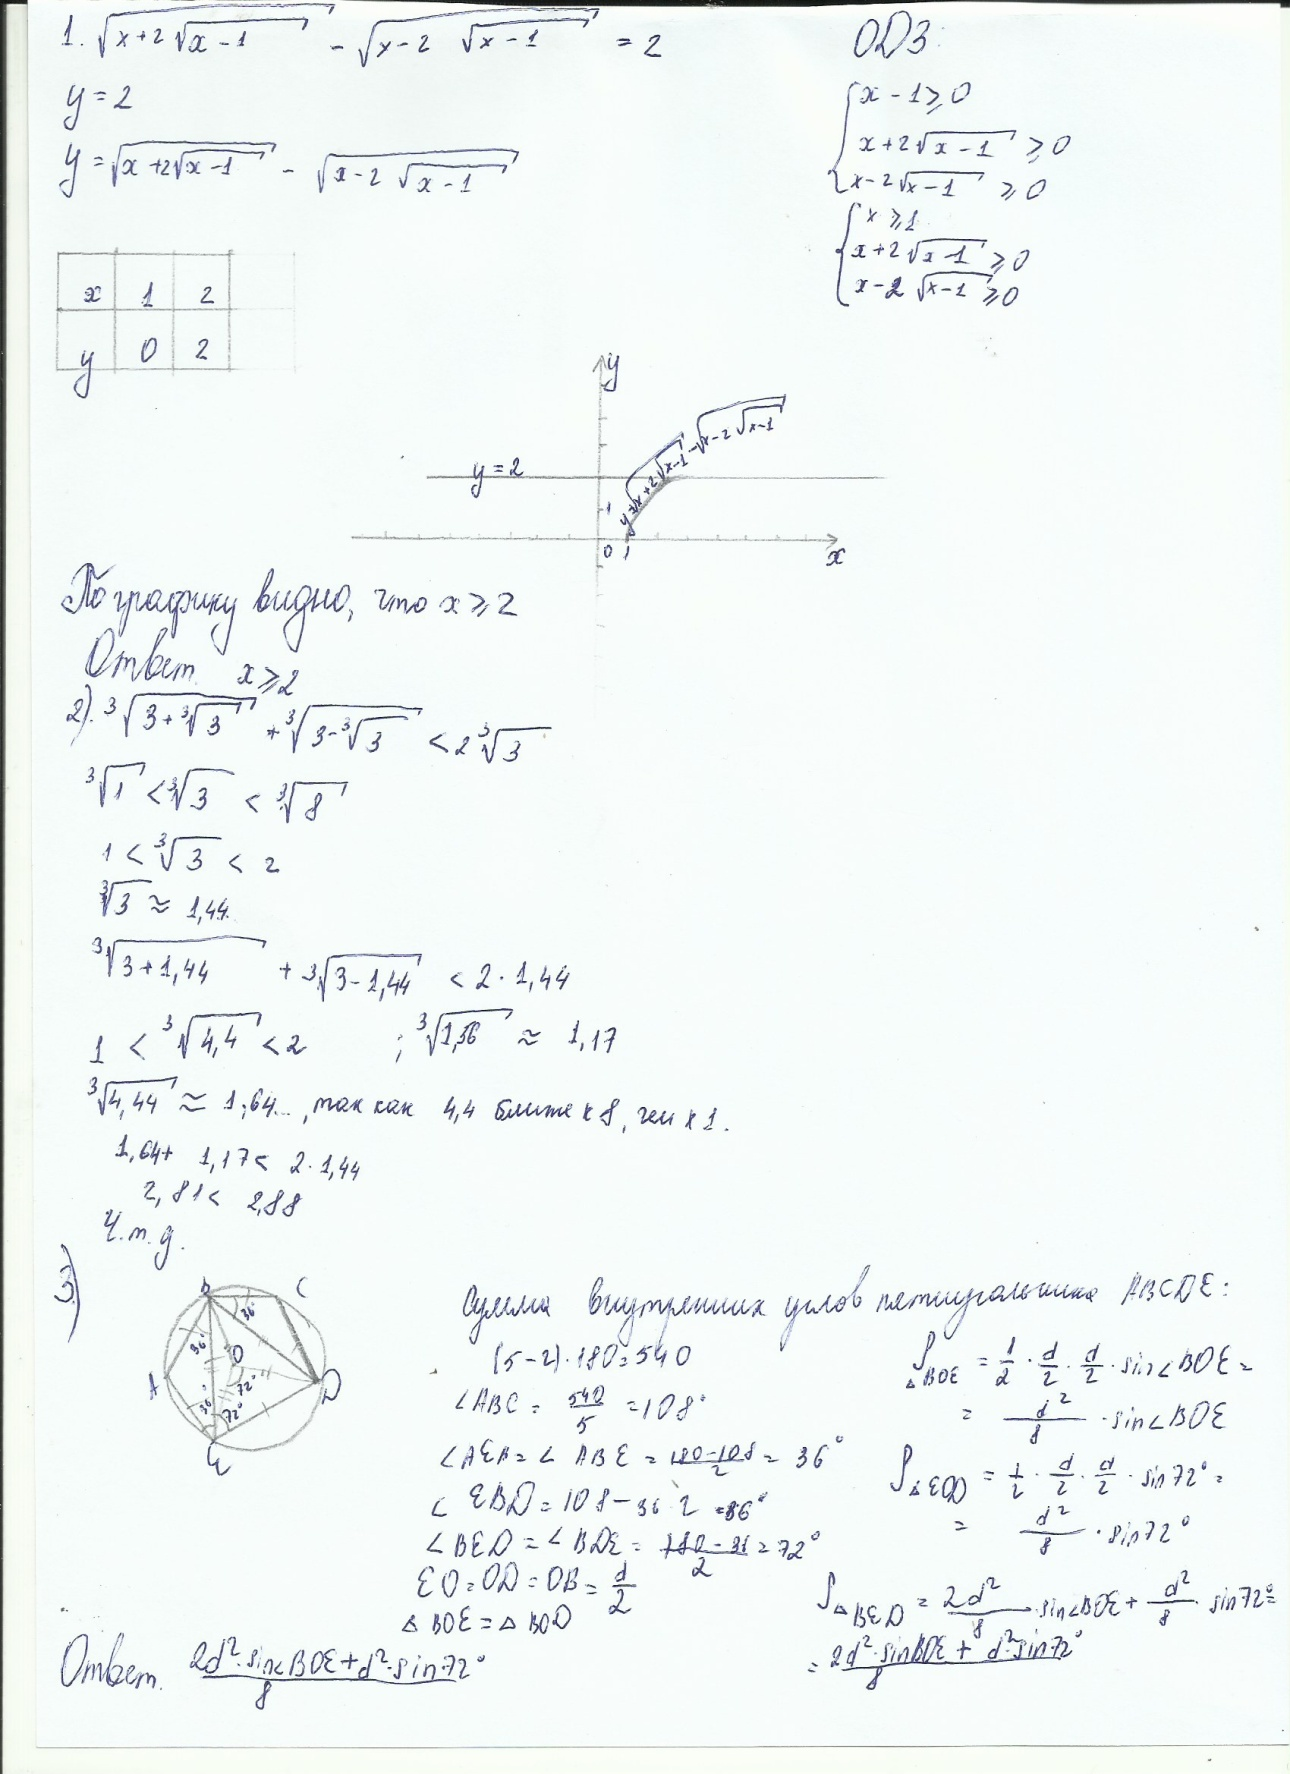 1. √(x+2√(x-1)) - √(x-2√(x-1)) = 2
ОДЗ:
y = 2
y = √(x+2√(x-1)) - √(x-2√(x-1))
{ x-1 ≥ 0
x+2√(x-1) ≥ 0
x-2√(x-1) ≥ 0
{ x ≥ 1
x+2√(x-1) ≥ 0
x-2√(x-1) ≥ 0
x 1 2
y 0 2
y
y = 2
y=√(x+2√(x-1)) - √(x-2√(x-1))
1
0 1
x
По графику видно, что x ≥ 2
Ответ. x ≥ 2
2). ∛(3+∛3) + ∛(3-∛3) < 2∛3
∛1 < ∛3 < ∛8
1 < ∛3 < 2
∛3 ≈ 1,44.
∛(3+1,44) + ∛(3-1,44) < 2·1,44
1 < ∛4,4 < 2 ; ∛1,56 ≈ 1,17
∛4,44 ≈ 1,64..., так как 4,4 ближе к 8, чем к 1.
1,64+ 1,17 < 2·1,44
2,81 < 2,88
Ч.т.д.
3)
B C
36°
36°
O
A D
72°
36° 72°
E
Сумма внутренних углов пятиугольника ABCDE:
(5-2)·180=540
∠ABC = 540/5 = 108°
∠AEB = ∠ABE = (180-108)/2 = 36°
∠EBD = 108-36·2 = 36°
∠BED = ∠BDE = (180-36)/2 = 72°
EO = OD = OB = d/2
△BOE = △BOD
S△BOE = 1/2 · d/2 · d/2 · sin∠BOE =
= d²/8 · sin∠BOE
S△EOD = 1/2 · d/2 · d/2 · sin72° =
= d²/8 · sin72°
S△BED = 2d²/8 · sin∠BOE + d²/8 · sin72° =
= (2d²·sinBOE + d²·sin72°)/8
Ответ. (2d²·sin∠BOE+d²·sin72°)/8